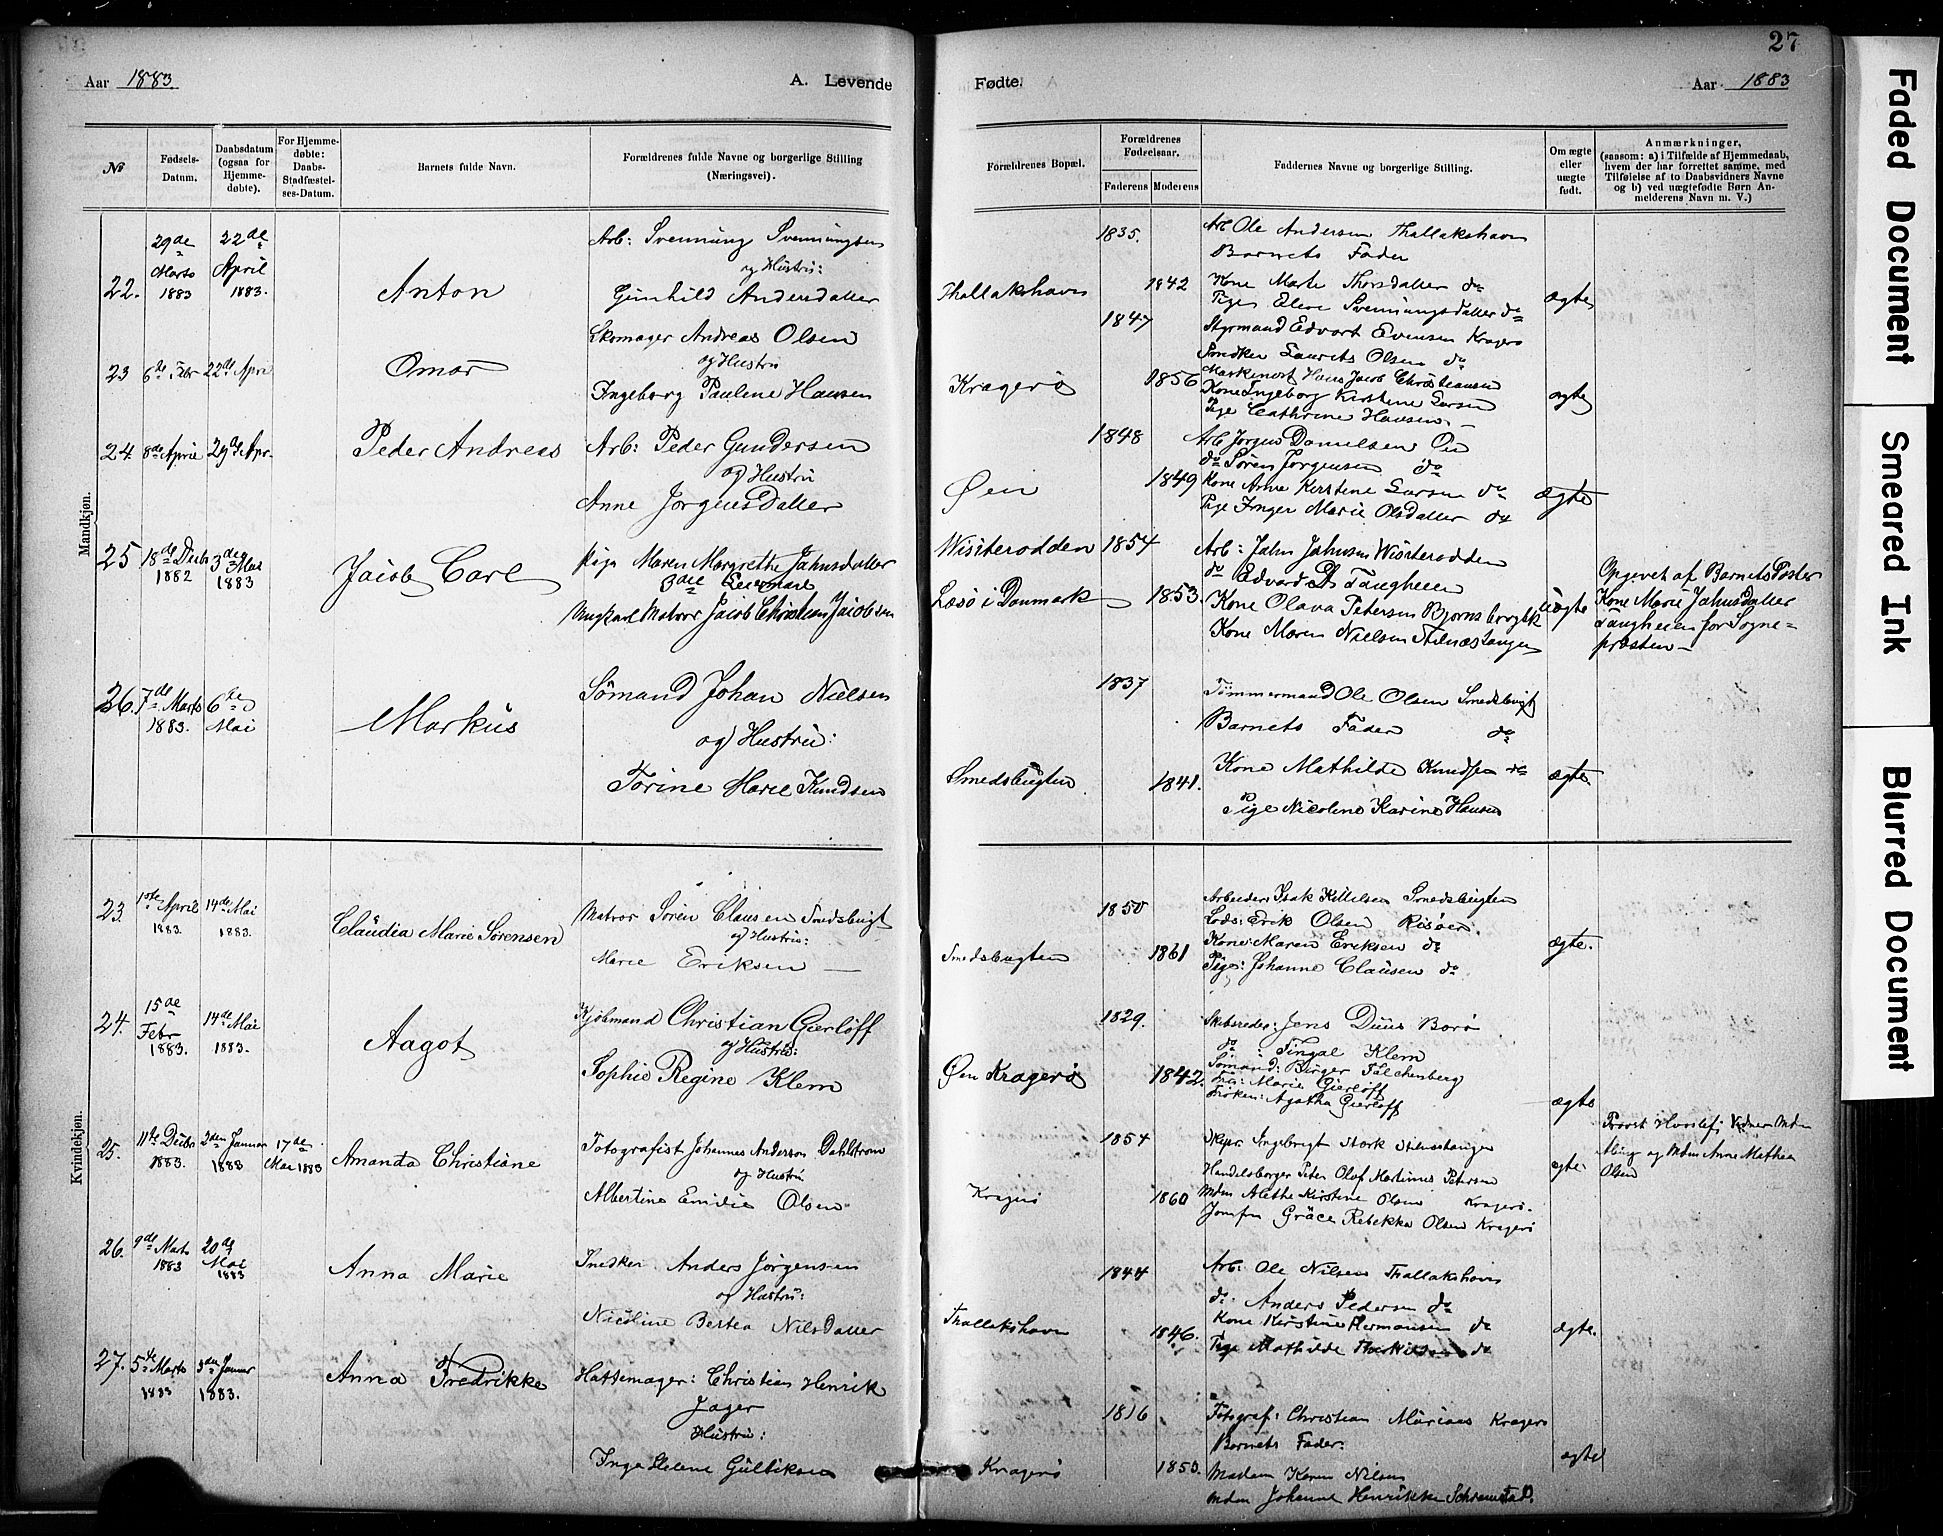 27
Aar 1883.
A. Levende
Fødte.
Aar 1883
№
Fødsels-
Datum.
Daabsdatum
(ogsaa for
Hjemme-
døbte).
For Hjemme-
døbte:
Daabs-
Stadfæstel-
ses-Datum.
Barnets fulde Navn.
Forældrenes fulde Navne og borgerlige Stilling
(Næringsvei).
Forældrenes Bopæl.
Forældrenes
Fødselsaar.
Faderens
Moderens
Faddernes Navne og borgerlige Stilling.
Om ægte
eller
uægte
født.
Anmærkninger,
(saasom: a) i Tilfælde af Hjemmedaab,
hvem der har forrettet samme, med
Tilføielse af to Daabsvidners Navne
og b) ved uægtefødte Børn An-
melderens Navn m. V.)
Mandkjøn.
22.
29de
Marts
1883
22de
April
1883.
Anton
Arb: Svennung Svennungsen
og Hustru:
Gunhild Andersdatter
Thallakshavn
1835.
1842
Arb Ole Andersen Thallakshavn
Barnets Fader
Kone Marte Thorsdatter do
Pige Elene Svennungsdatter do
ægte
23
6te Febr
22de April
Omar
Skomager Andreas Olsen
og Hustru
Ingeborg Pauline Hansen
Kragerø
1847
1856
Styrmand Edvart Evensen Kragerø
Snedker Laurits Olsen do
Hans Jacob Christiansen
Kone Ingeborg Kirstine Larsen
Pige Cathrine Hansen
ægte
24.
8de April
29de Apr.
Peder Andreas
Arb: Peder Gundersen
og Hustru
Anne Jørgensdatter
Øen
1848
1849
Arb Jørgen Danielsen Øen
do Søren Jørgensen do
Kone Anne Kirstine Larsen do
Pige Inger Marie Olsdatter do
ægte
25
18de Decbr
1882
3die Mai
1883
Jacob Carl
Pige Maren Margrethe Jahnsdatter
3die Leiermaal
Ungkarl Matros Jacob Christian Jacobsen
Wisterodden
Læsø i Danmark
1854
1853.
Arb: Jahn Jahnsen Wisterodden
do Edvard Tangheien
Kone Olava Petersen Bjørnsbrygk
Kone Maren Nielsen Stilnæstangen
uægte
Opgivet af Barnets Moster
Kone Marie Jahnsdatter
Tangheien for Sogne-
præsten
26.
7de Marts
1883.
6te
Mai
Markus
Sømand Johan Nielsen
og Hustru:
Torine Marie Knudsen
Smedsbugten
1837
1841.
Tømmermand Ole Olsen Smedsbugt
Barnets Fader do
Kone Mathilde Knudsen do
Pige Nicoline Karine Hansen
ægte
Kvindekjøn.
23.
1ste April
1883.
14de Mai
1883.
Claudia Marie Sørensen
Matros Søren Clausen Smedsbugt
og Hustru:
Marie Eriksen
Smedsbugten
1850
1861
Arbeider: Isak Kittelsen Smedsbugten
Lods: Erik Olsen Risøen
Kone: Maren Eriksen do
Pige: Johanne Clausen do
ægte.
24.
15de
Febr
1883.
14de Mai
1883.
Aagot
Kjøbmand Christian Gierløff
og Hustru:
Sophie Regine Klem
Øen Kragerø
1829.
1842.
Skibsreder: Jens Duus Borø
do : Fingal Klem
Sømand: Birger Falchenberg
Fru: Marie Gierløff
Frøken: Agatha Gierløff
ægte
25.
11te Decbr
1883.
2den Januar
1883
17de
Mai 1883
Amanda Christiane
Fotografist Johannes Anderson Dahlstrøm
og Hustru
Albertine Emilie Olsen
Kragerø
1854
1860
Skipr. Ingebrigt Stork Stilnæstangen
Handelsborger Peter Olaf Martinius Petersen
Mdm Alethe Kirstine Olsen Kragerø.
Jomfru Gräce Rebekka Olsen Kragerø
ægte
og Mdm Anne Mathea
Olsen
26.
9de Marts
1883
20de
Mai
1883
Anna Marie
Snedker Anders Jørgensen
og Hustru:
Nicoline Bertea Nilsdatter
Thallakshavn
1844
1846.
Arb: Ole Nilsen Thallakshavn
do. Anders Pedersen do
Kone Kirstine Hermansen do
Pige Mathilde do
ægte.
27.
5te Marts
1883
3die Januar
1883.
Anna Fredrikke
Hattemager: Christian Henrik
Jager
Hustru:
Inge Helene Gulliksen
Kragerø
1816
1850.
Fotograf: Christian Kragerø
Barnets Fader:
Madam Karen Nilsen
Mdm Johanne Henrikke Schrømstad.
ægte
Faded Document
Smeared Ink
Blurred Document